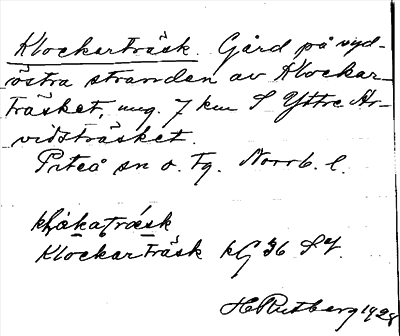 Klockarträsk. Gård på syd-
östra stranden av Klockar-
träsket, ung. 7 km S Yttre Ar-
vidsträsket.
Piteå sn o. tg. Norrb. l.
Klockarträsk kG 36
H Rutberg 1928